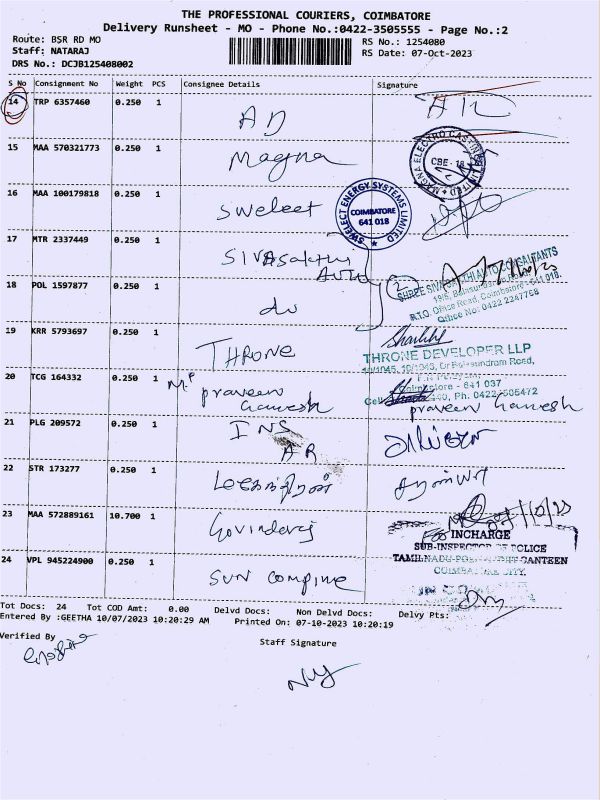 THE PROFESSIONAL COURIERS, COIMBATORE
Delivery Runsheet - MO - Phone No.:0422-3505555 - Page No.:2
Route: BSR RD MO
RS No.: 1254080
Staff: NATARAJ
RS Date: 07-Oct-2023
DRS No.: DCJB125408002
S No Consignment No Weight PCS Consignee Details Signature
14 TRP 6357460 0.250 1 AD
15 MAA 570321773 0.250 1 Magna
MAGNA ELECTRO CASTINGS LIMITED
CBE - 18
16 MAA 100179818 0.250 1 Swelect
SWELECT ENERGY SYSTEMS LIMITED
COIMBATORE
641 018
17 MTR 2337449 0.250 1 SIVAsakthi
Auto
2
SHREE SIVASAKTHI AUTO CONSULTANTS
R.T.O. Office Road, Coimbatore - 641 018.
Office No: 0422 2247768
18 POL 1597877 0.250 1 do
19 KRR 5793697 0.250 1 THRONE
THRONE DEVELOPER LLP
Coimbatore - 641 037
20 TCG 164332 0.250 1 Mr praveen
Ganesh
praveen Ganesh
21 PLG 209572 0.250 1 INS
AR
22 STR 173277 0.250 1
23 MAA 572889161 10.700 1 Govindaraj
INCHARGE
SUB-INSPECTOR OF POLICE
COIMBATORE CITY.
24 VPL 945224900 0.250 1 SUN
Tot Docs: 24 Tot COD Amt: 0.00 Delvd Docs: Non Delvd Docs: Delvy Pts:
Entered By :GEETHA 10/07/2023 10:20:29 AM Printed On: 07-10-2023 10:20:19
Verified By
Staff Signature